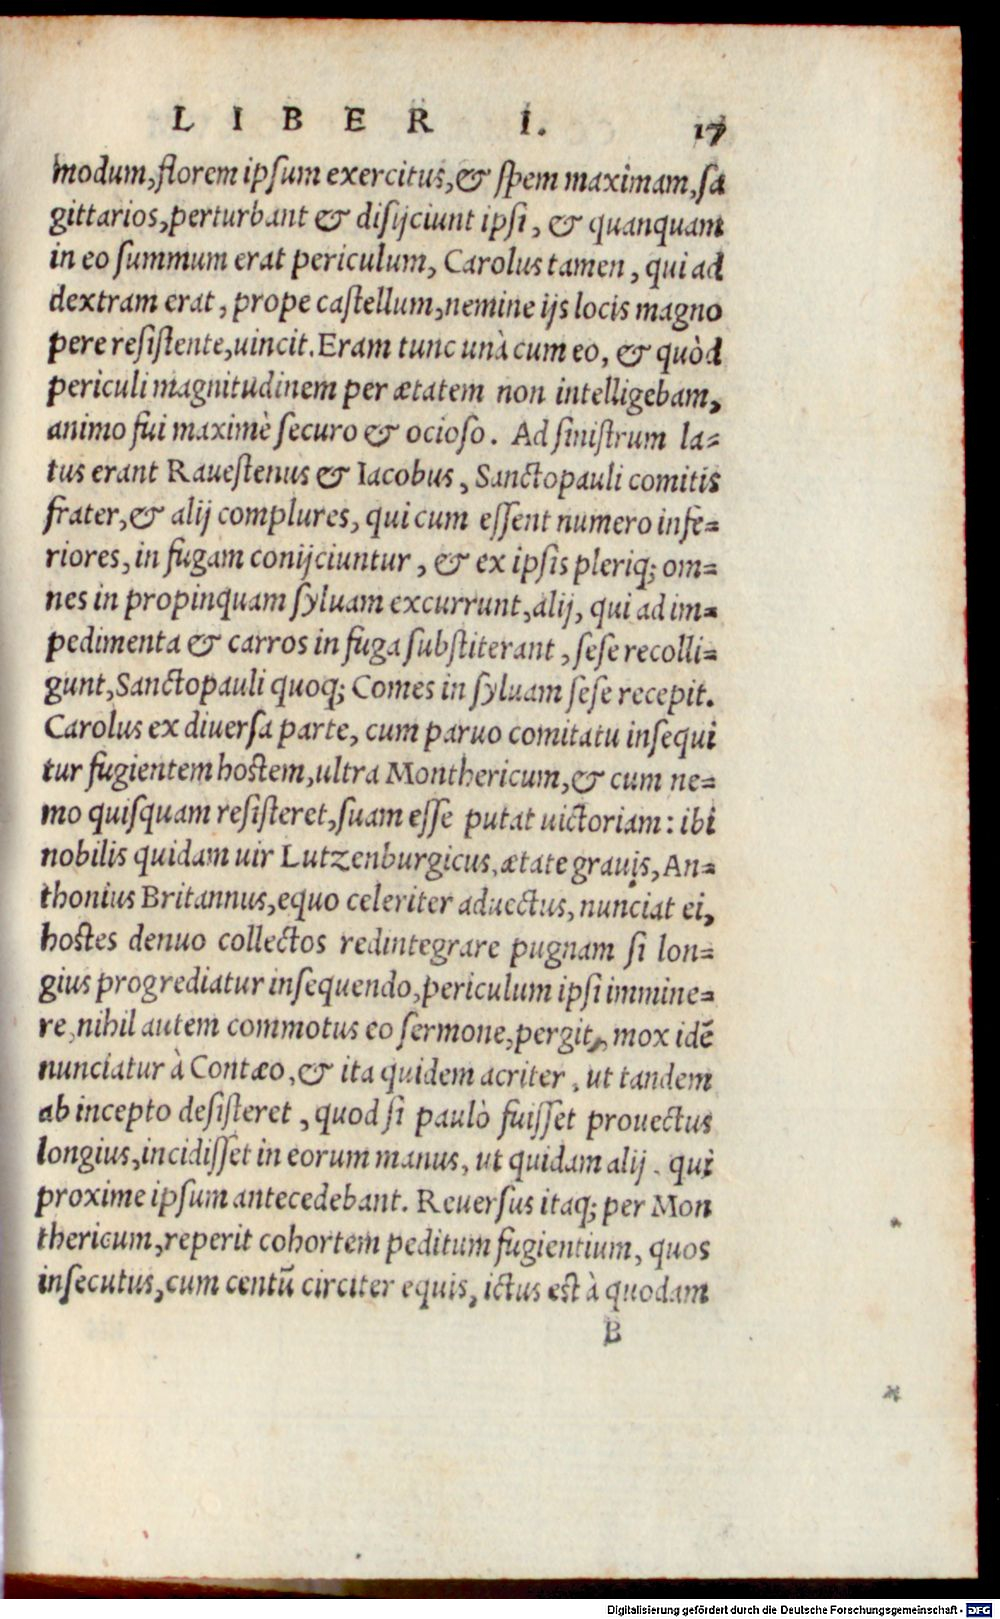 LIBER I. 17
modum, florem ipsum exercitus, & spem maximam, sa
gittarios, perturbant & disijciunt ipsi, & quanquam
in eo summum erat periculum, Carolus tamen, qui ad
dextram erat, prope castellum, nemine ijs locis magno
pere resistente, uincit. Eram tunc unà cum eo, & quòd
periculi magnitudinem per ætatem non intelligebam,
animo fui maximè securo & ocioso. Ad sinistrum la-
tus erant Rauestenus & Iacobus, Sanctopauli comitis
frater, & alij complures, qui cum essent numero infe-
riores, in fugam conijciuntur, & ex ipsis pleriq; om-
nes in propinquam syluam excurrunt, alij, qui ad im-
pedimenta & carros in fuga substiterant, sese recolli-
gunt, Sanctopauli quoq; Comes in syluam sese recepit.
Carolus ex diuersa parte, cum paruo comitatu insequi
tur fugientem hostem, ultra Monthericum, & cum ne-
mo quisquam resisteret, suam esse putat uictoriam: ibi
nobilis quidam uir Lutzenburgicus, ætate grauis, An-
thonius Britannus, equo celeriter aduectus, nunciat ei,
hostes denuo collectos redintegrare pugnam si lon-
gius progrediatur insequendo, periculum ipsi immine-
re, nihil autem commotus eo sermone, pergit, mox idē
nunciatur à Contæo, & ita quidem acriter, ut tandem
ab incepto desisteret, quod si paulò fuisset prouectus
longius, incidisset in eorum manus, ut quidam alij, qui
proxime ipsum antecedebant. Reuersus itaq; per Mon
thericum, reperit cohortem peditum fugientium, quos
insecutus, cum centū circiter equis, ictus est à quodam
B
Digitalisierung gefördert durch die Deutsche Forschungsgemeinschaft - DFG